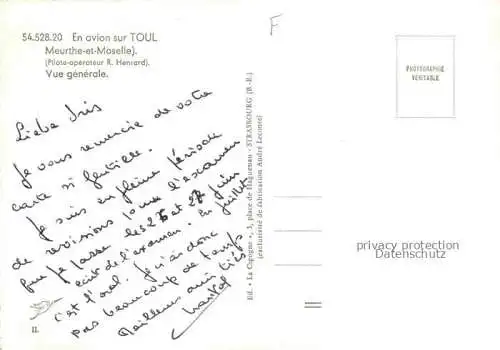 54.528.20 En avion sur TOUL
Meurthe-et-Moselle).
(Pilote-opérateur R. Henrard).
Vue générale.
F
PHOTOGRAPHIE
VÉRITABLE
Liebe Iris
Je vous remercie de votre
carte si gentille.
Je suis en pleine période
de revisions pour l'examen
que je passe les 26 et 27 juin
écrit de l'examen. En juillet
c'est l'oral. Je n'ai donc
pas beaucoup de temps
Meilleures amitiés
Chantal
Ed. « La Cigogne », 3, place de Haguenau - STRASBOURG (B.-R.)
(exclusivité de fabrication André Leconte)
II.
privacy protection
Datenschutz